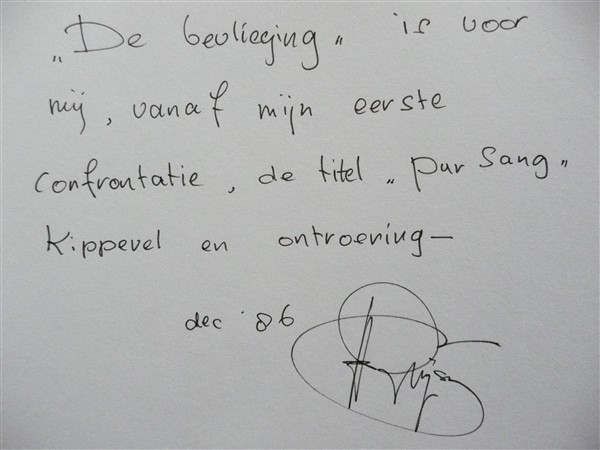 „De bevlieging„ is voor
mij, vanaf mijn eerste
confrontatie, de titel „pur sang„
Kippevel en ontroering—
dec '86